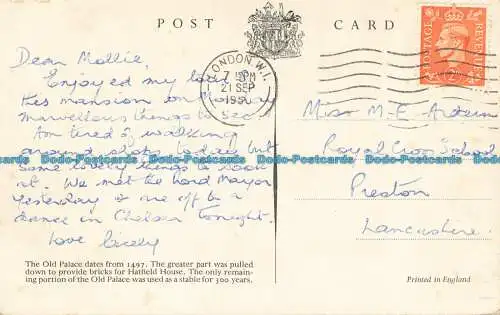 POST CARD
LONDON W.1.
7 PM
21 SEP
1950
POSTAGE REVENUE
Dear Mollie,
Enjoyed my look
this mansion on Monday
marvellous things to see
Am tired of walking
around shops today but
some lovely things to look
at. We met the Lord Mayor
yesterday & are off to a
dance in Chelsea tonight.
Love Cicely
Miss M. E.
Royal Cross School
Preston
Lancashire.
The Old Palace dates from 1497. The greater part was pulled
down to provide bricks for Hatfield House. The only remain-
ing portion of the Old Palace was used as a stable for 300 years.
Printed in England
Dodo-Postcards Dodo-Postcards Dodo-Postcards Dodo-Postcards Dodo-Postcards